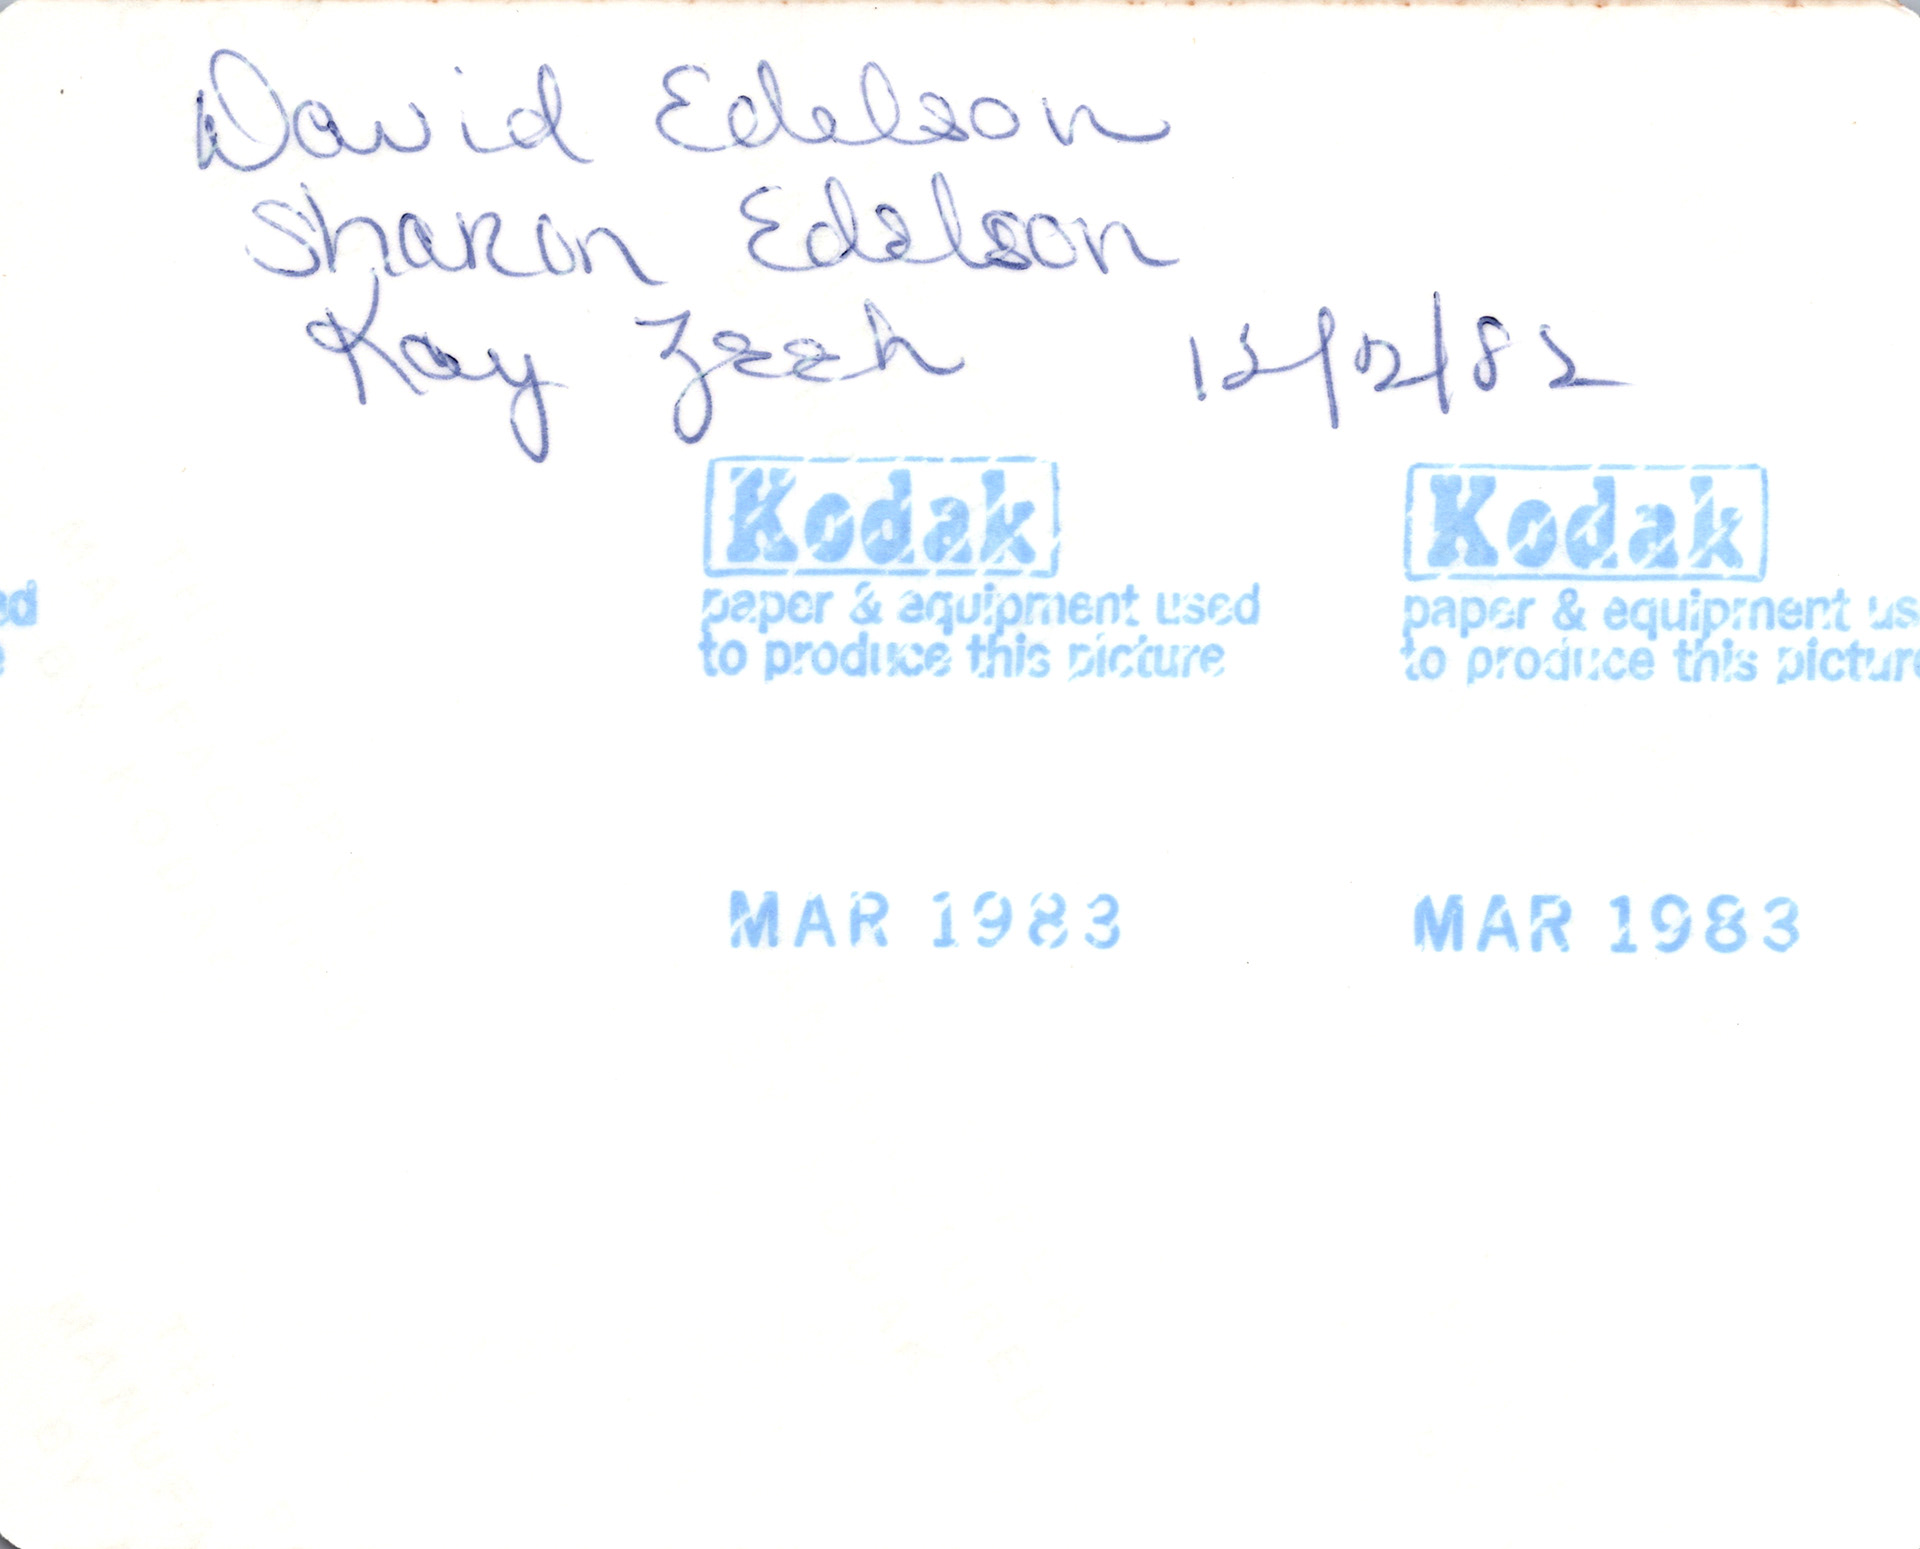 David Edelson
Sharon Edelson
Kay Zeeh 12/12/82
Kodak Kodak
ed paper & equipment used paper & equipment us
e to produce this picture to produce this picture
MAR 1983 MAR 1983